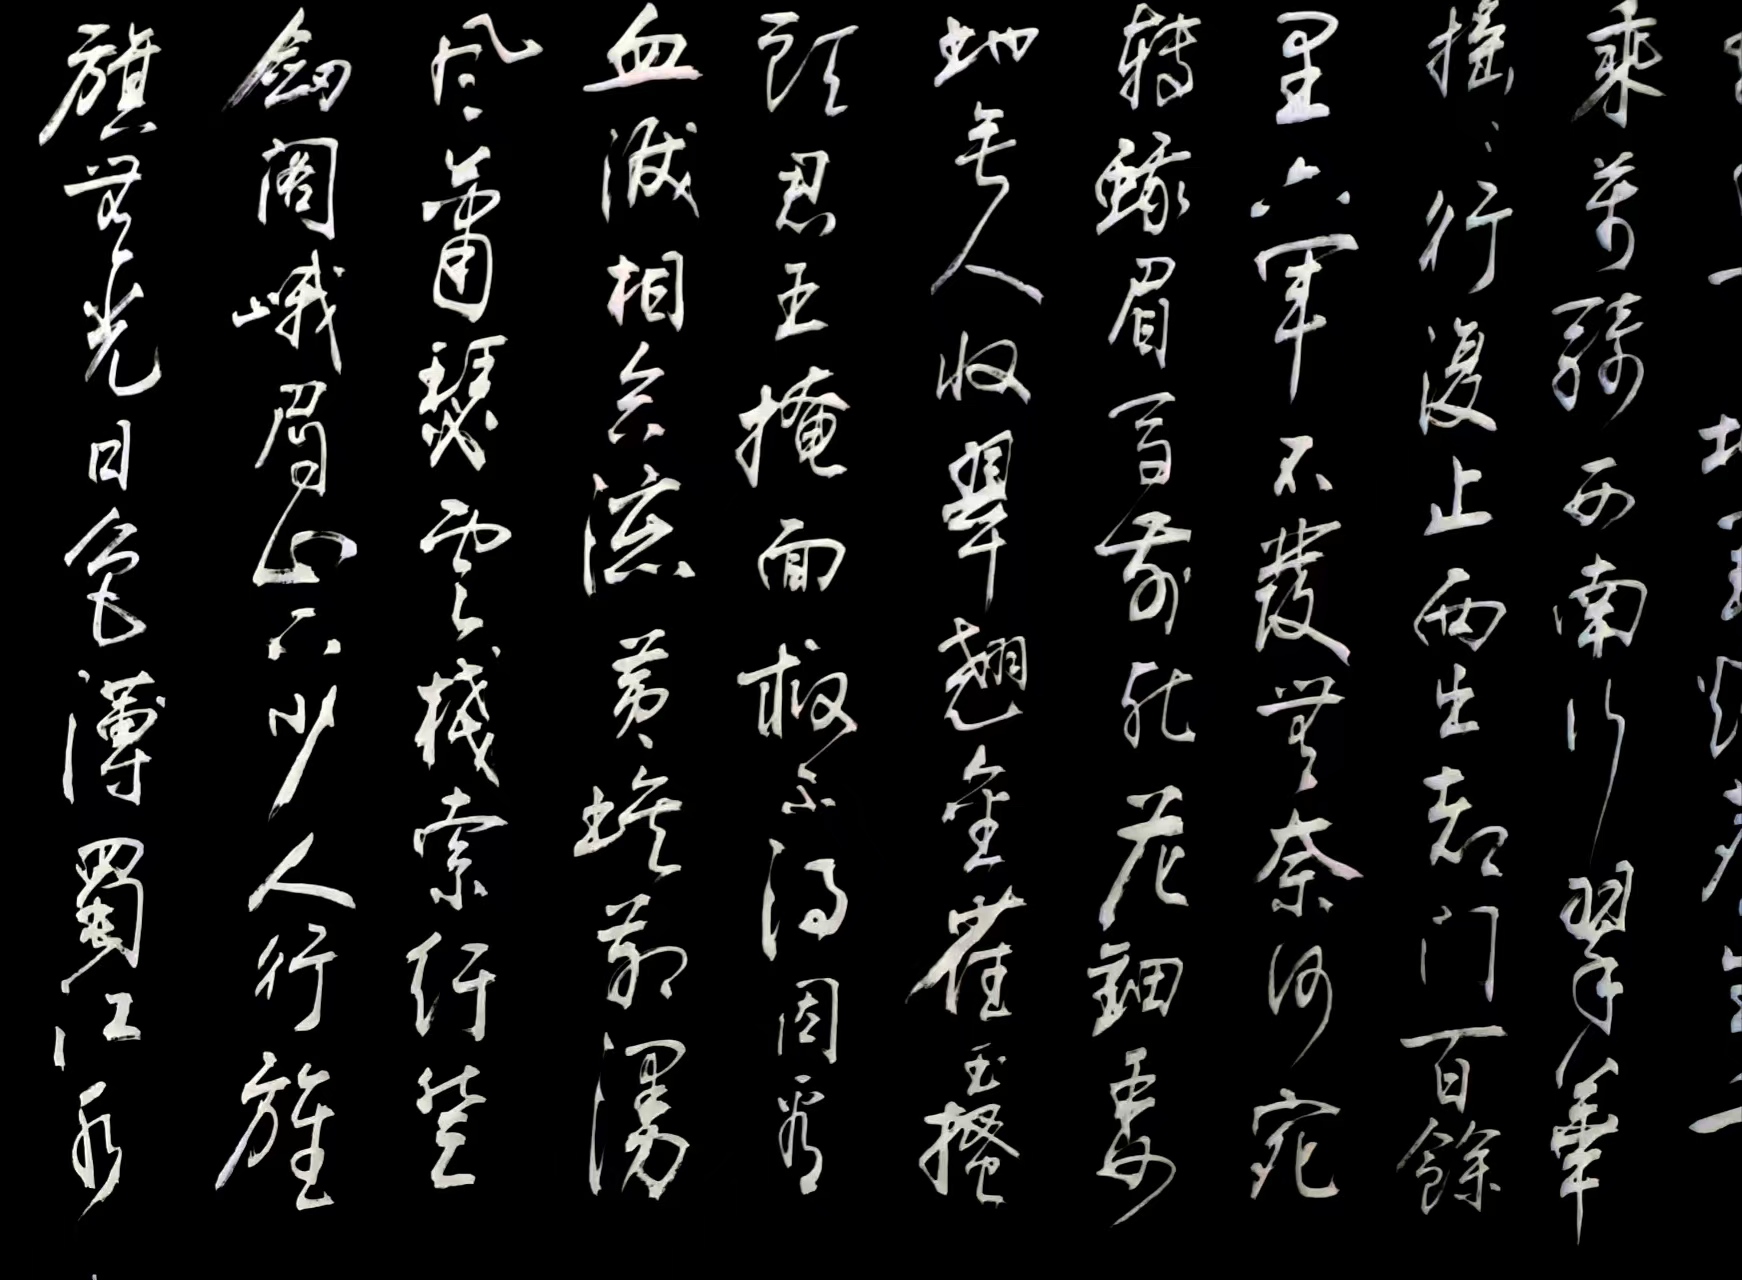 乘萬騎西南行翠華
搖〻行復止西出都門百餘
里六軍不發無奈何宛
轉蛾眉馬前死花鈿委
地無人收翠翹金雀玉搔
頭君王掩面救不得回看
血淚相和流黃埃散漫
風蕭瑟雲棧索紆登
劍閣峨眉山下少人行旌
旗無光日色薄蜀江水